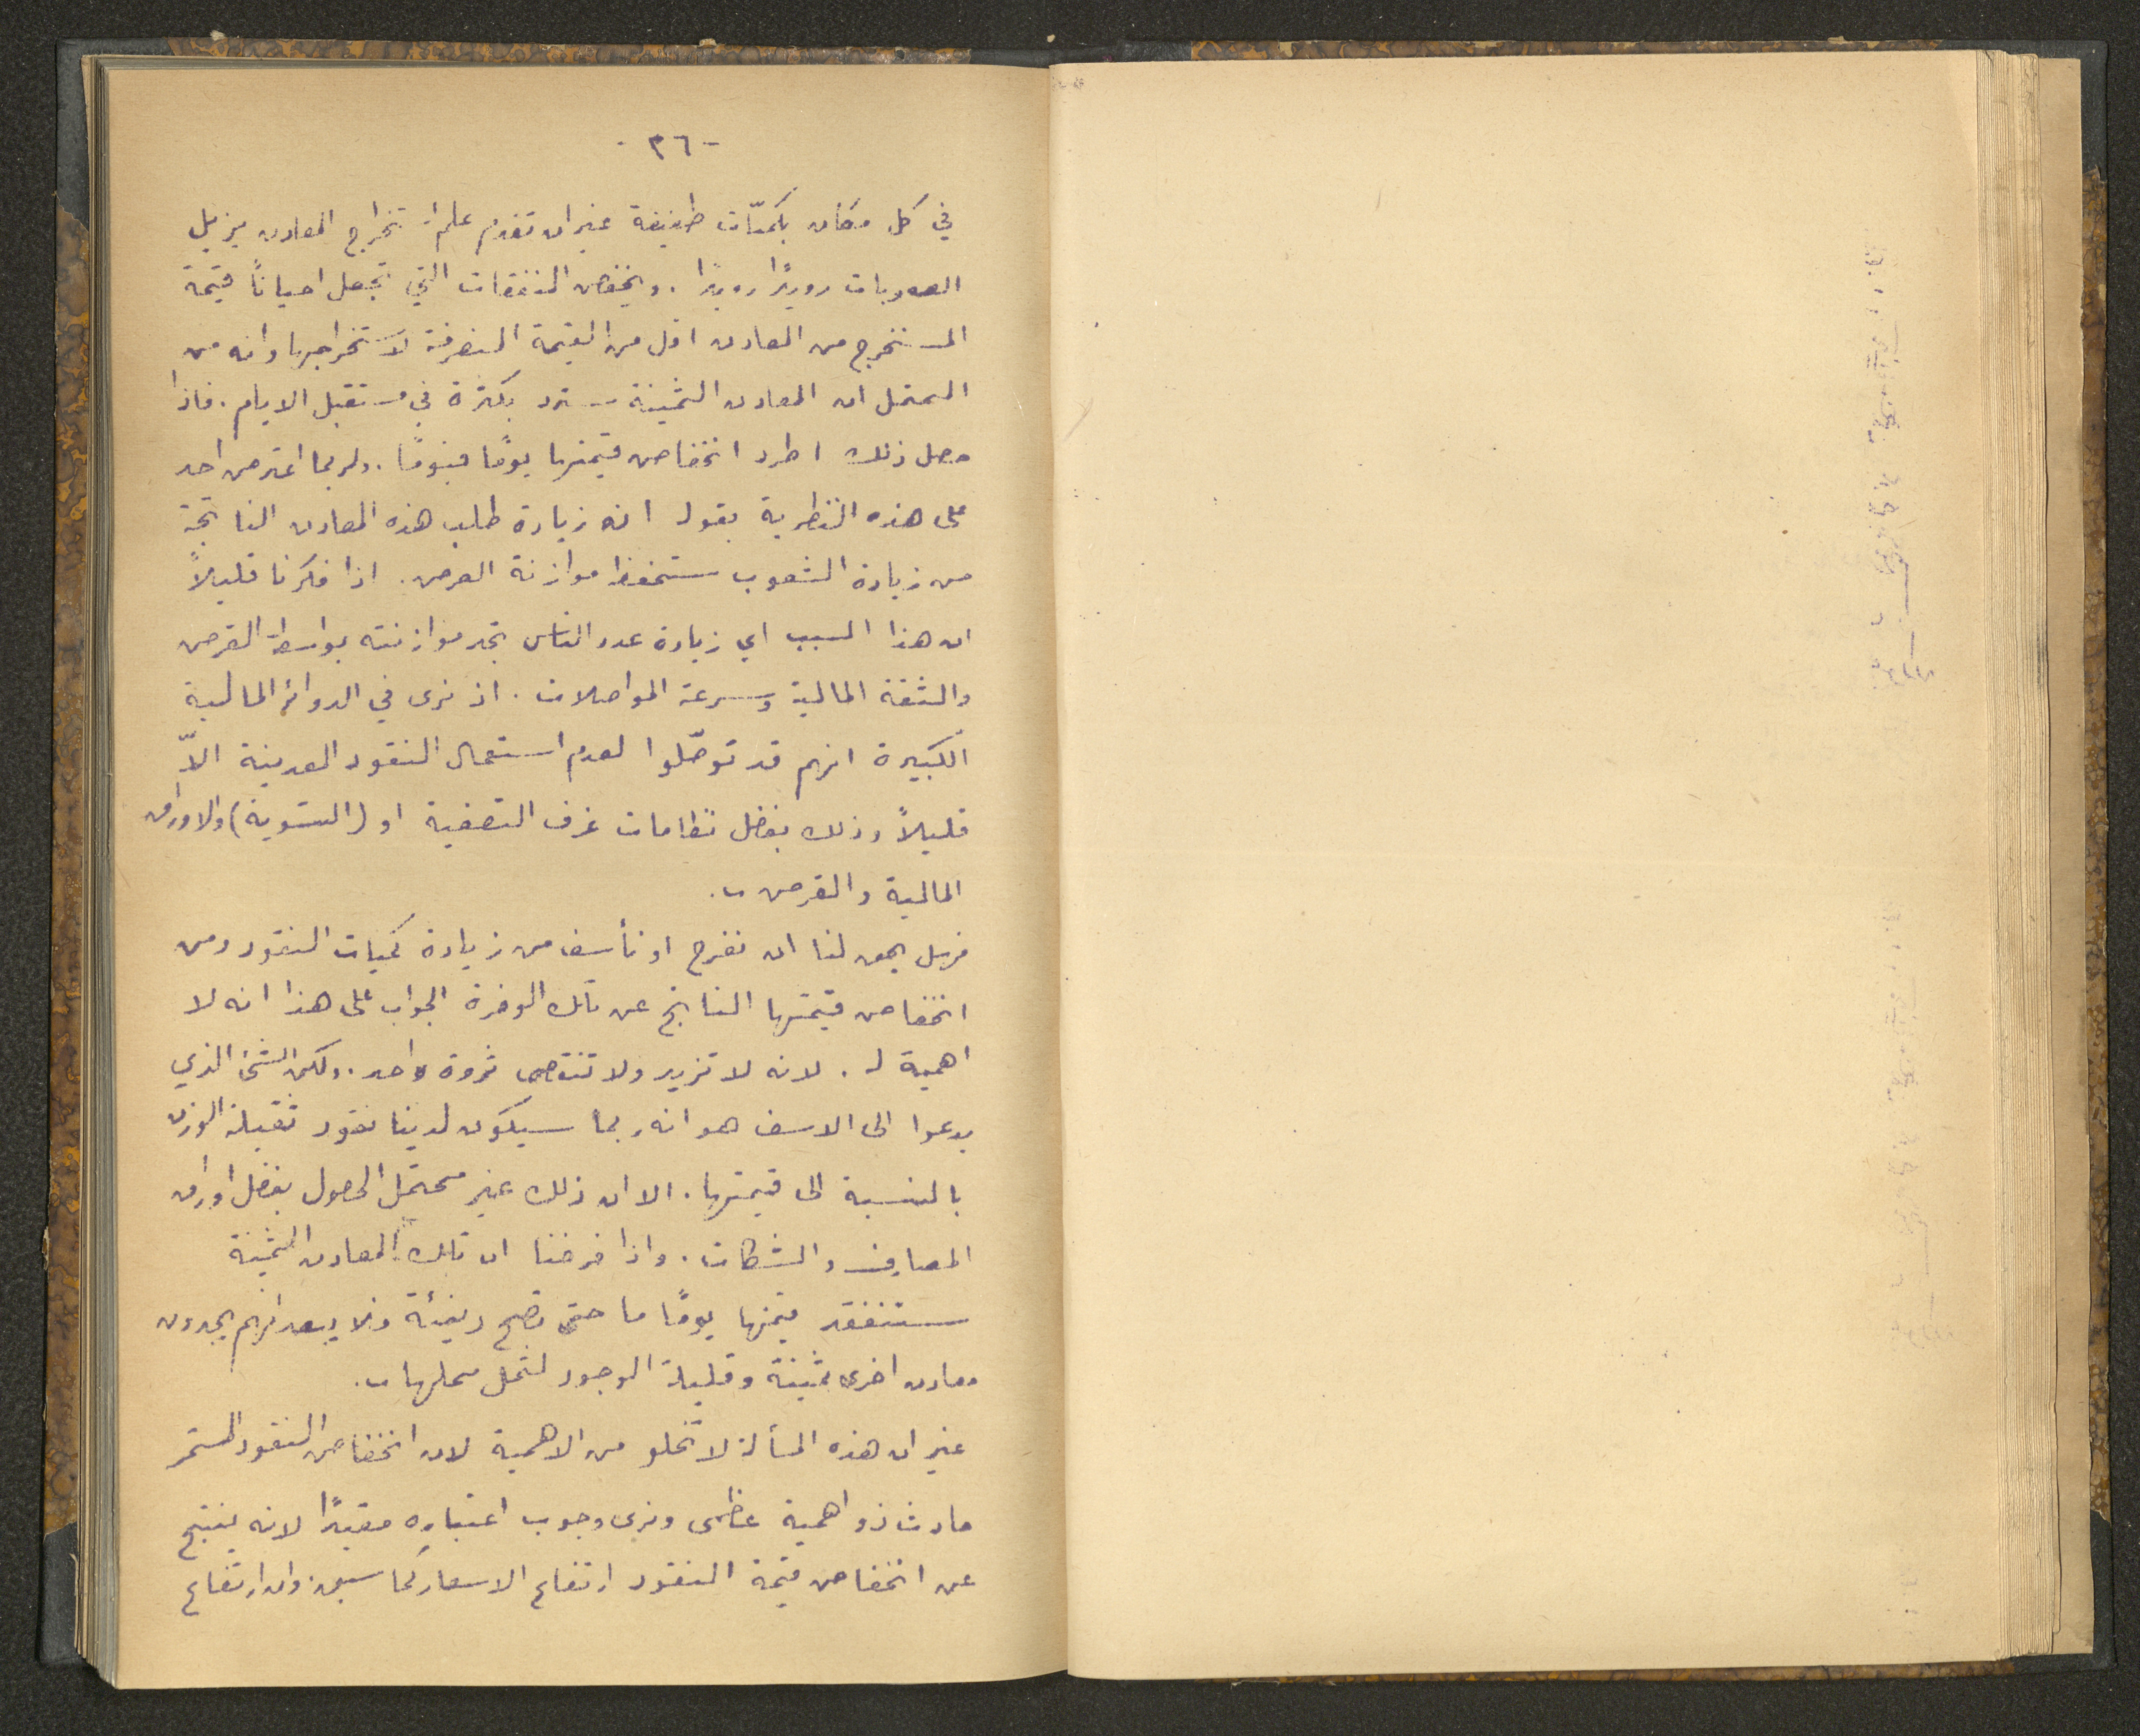 - ٣٦ -
في كل مكان بكميّات طفيفة غير ان تقدم علم استخراج المعادن يزيل
الصعوبات رويدًا رويدًا. ويخفض النفقات التي تجعل احيانًا قيمة
المستخرج من المعادن اقل من القيمة المنصرفة لاستخراجها وانه من
المحتمل ان المعادن الثمينة ستزد بكثرة في مستقبل الايام. فاذا
حصل ذلك اطرد انخفاض قيمتها يومًا فيومًا. ولربما اعترض احد
على هذه النظرية بقوله انه زيادة طلب هذه المعادن الناتجة
من زيادة الشعوب ستحفظ موازنة العرض. اذا فكرنا قليلاً
ان هذا السبب اي زيادة عدد الناس تجد موازنته بواسطة القرض
والثقة المالية وسرعة المواصلات. اذ نرى في الدوائر المالية
الكبيرة انهم قد توصّلوا لعدم استعمال النقود المعدنية الاّ
قليلاً وذلك بفضل نظامات غرف التصفية او (التسوية) والاوراق
المالية والقرض ..
فهل يحق لنا ان نفرح او نأسف من زيادة كميات النقود ومن
انخفاض قيمتها الناتج عن تلك الوفرة الجواب على هذا انه لا
اهمية له. لانه لا تزيد ولا تنتقص ثروة واحد. ولكن الشئ الذي
يدعوا الى الاسف هو انه ربما سيكون لدينا نقود ثقيلة الوزن
بالنسبة الى قيمتها. الا ان ذلك غير محتمل الحصول بفضل اوراق
المصارف والشكات. واذا فرضنا ان تلك المعادن الثمينة
ستفقد قيمتها يومًا ما حتى تصبح دنيئة فلا يبعد انهم يجدون
معادن اخرى ثمينة وقليلة الوجود لتحل محلها ..
غير ان هذه المسألة لا تخلو من الاهمية لان انخفاض النقود المستمر
حادث ذو اهمية عظمى ونرى وجوب اعتباره مفيدًا لانه ينتج
عن انخفاض قيمة النقود ارتفاع الاسعار كما سبق. وان ارتفاع